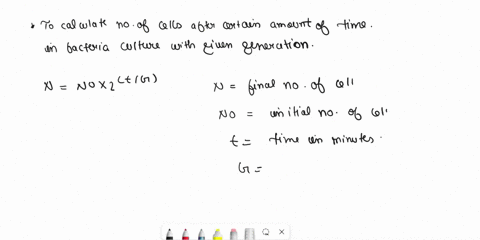 • To calculate no. of cells after certain amount of time.
in bacteria culture with given generation.
N = N0 x 2^(t/G)
N = final no. of cell
N0 = initial no. of cell
t = time in minutes.
G =